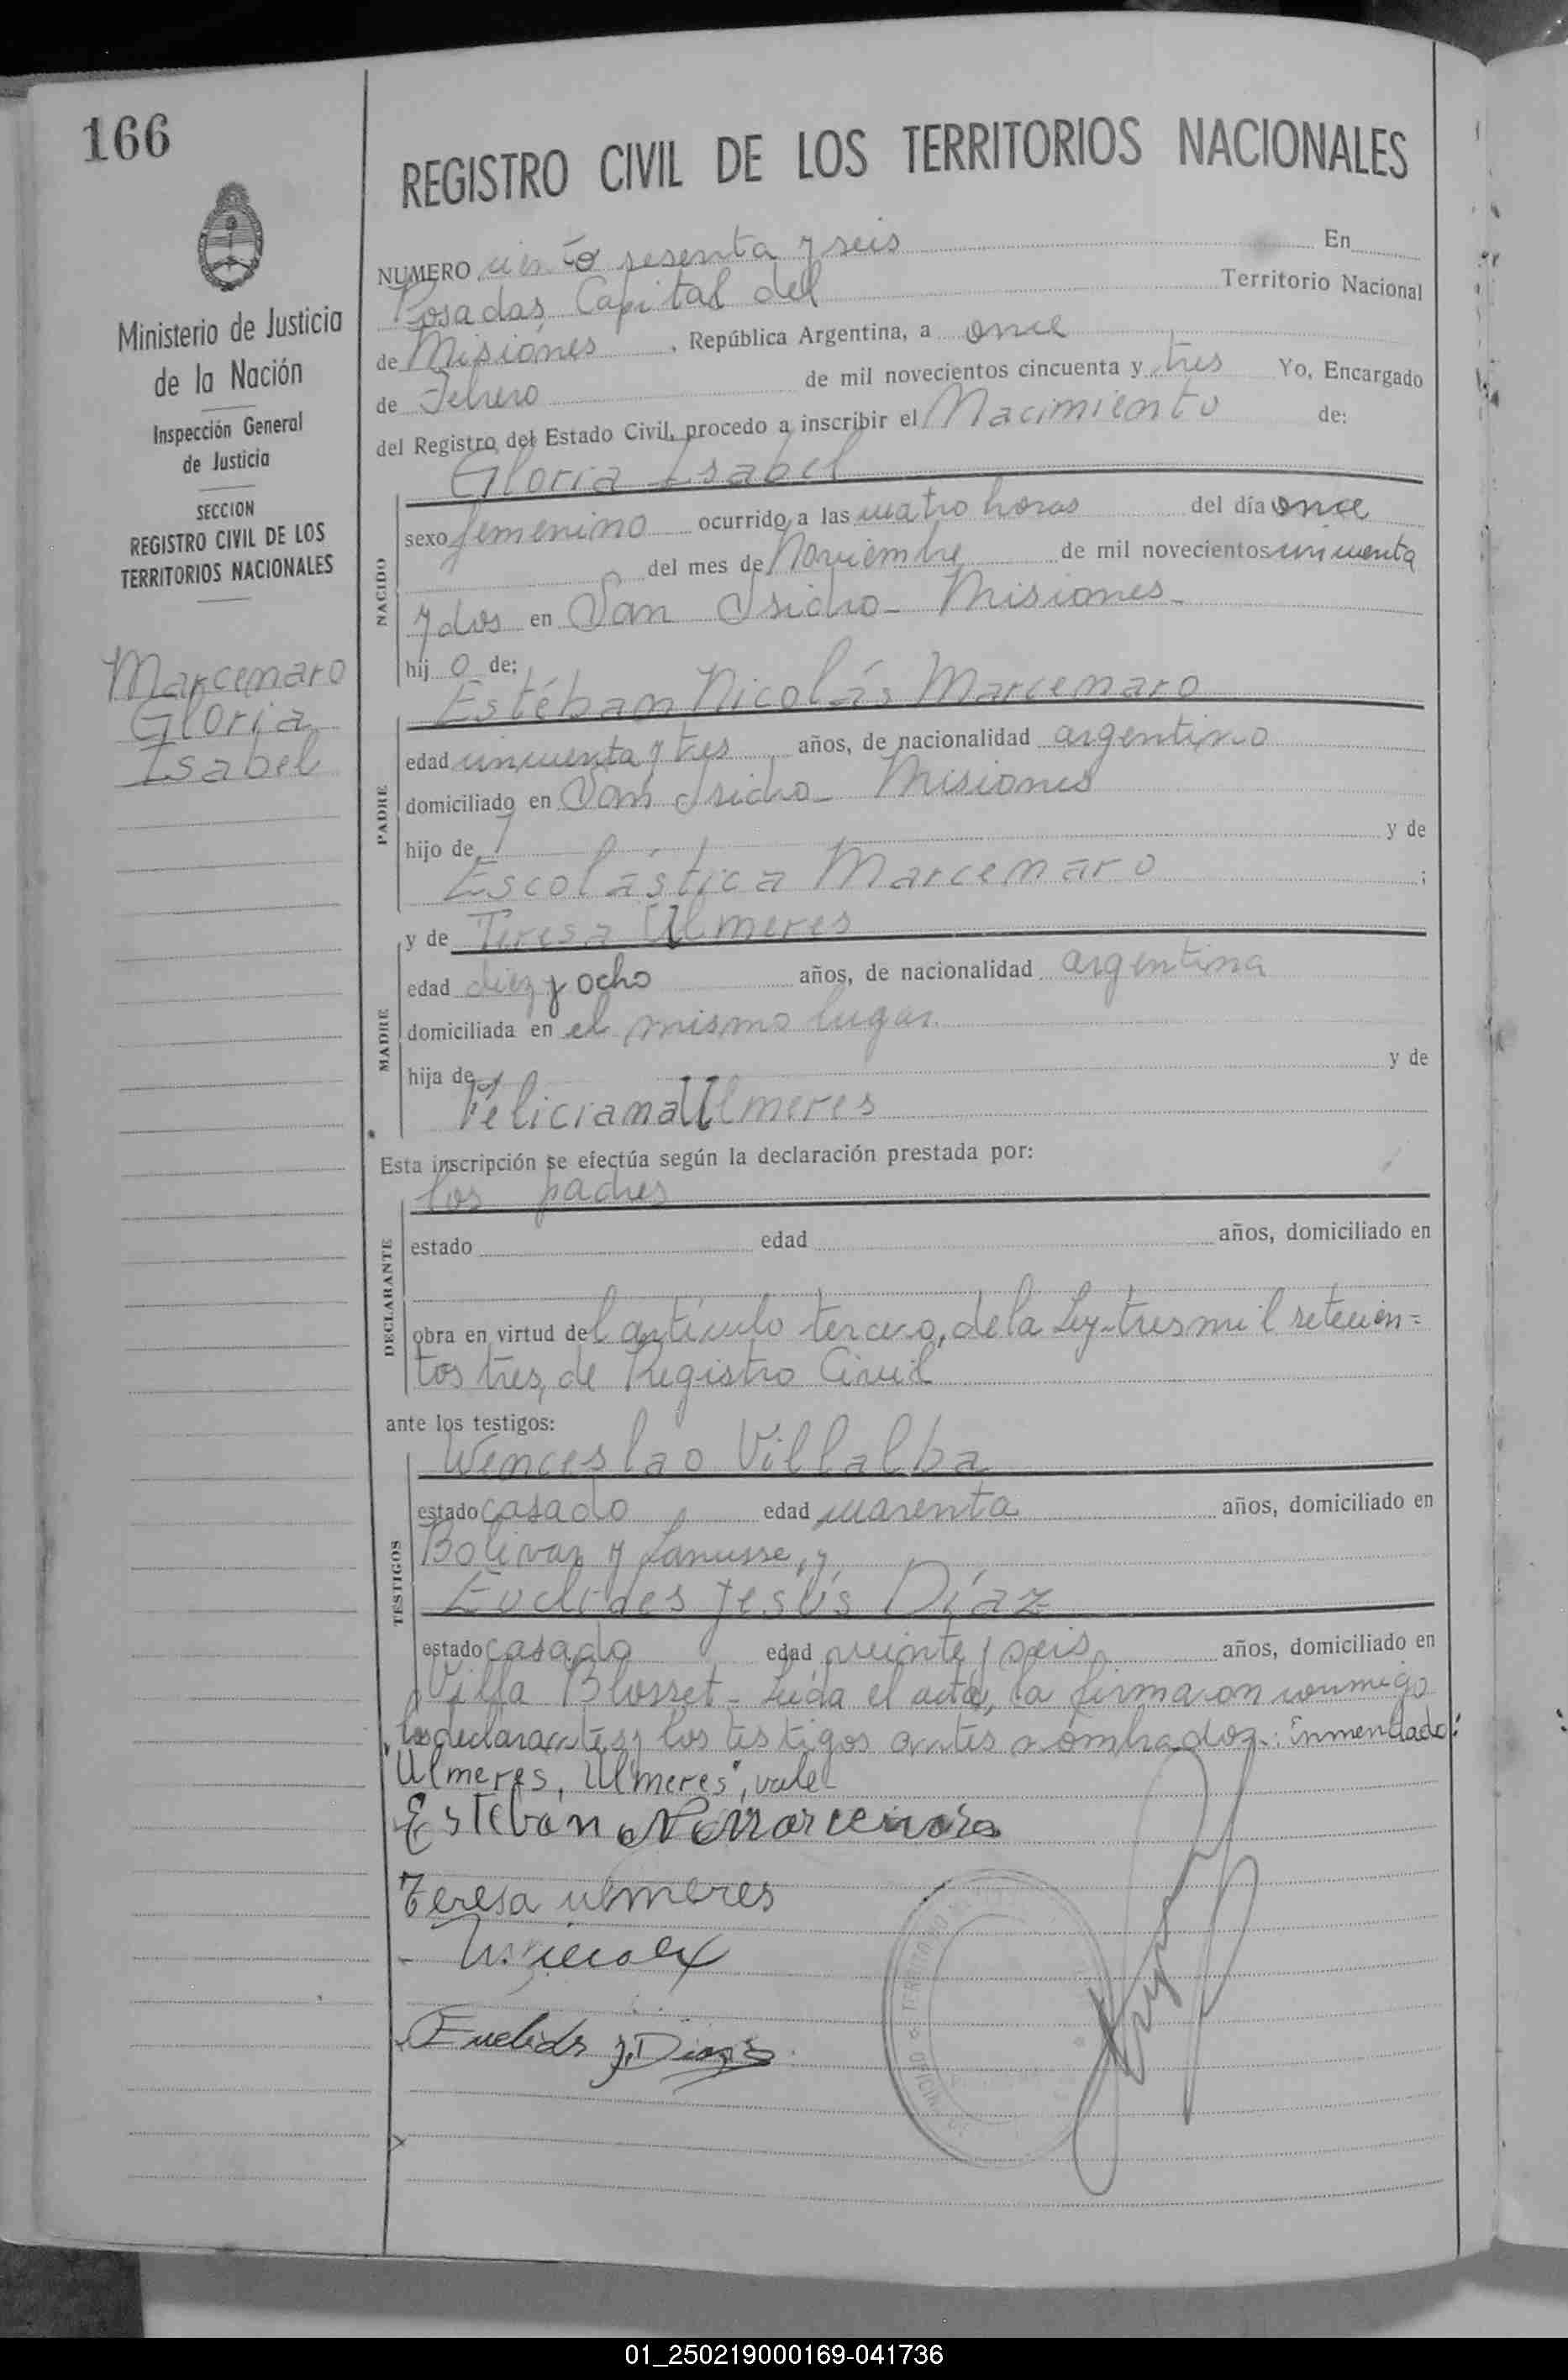 166
REGISTRO CIVIL DE LOS TERRITORIOS NACIONALES
Ministerio de Justicia
de la Nación
Inspección General
de Justicia
SECCION
REGISTRO CIVIL DE LOS
TERRITORIOS NACIONALES
Marcenaro
Gloria
Isabel
NUMERO ciento sesenta y seis En
Posadas, Capital del Territorio Nacional
de Misiones, República Argentina, a once
de Febrero de mil novecientos cincuenta y tres Yo, Encargado
del Registro del Estado Civil, procedo a inscribir el Nacimiento de:
Gloria Isabel
NACIDO
sexo femenino ocurrido a las cuatro horas del día once
del mes de Noviembre de mil novecientos cincuenta
y dos en San Isidro - Misiones -
hij a de:
Estéban Nicolás Marcenaro
PADRE
edad cincuenta y tres años, de nacionalidad argentino
domiciliado en San Isidro - Misiones
hijo de y de
Escolástica Marcenaro ;
y de Teresa Ulmeres
MADRE
edad diez y ocho años, de nacionalidad argentina
domiciliada en el mismo lugar
hija de y de
Feliciana Ulmeres
Esta inscripción se efectúa según la declaración prestada por:
los padres
DECLARANTE
estado edad años, domiciliado en
obra en virtud del artículo tercero, de la Ley tres mil setecien=
tos tres, de Registro Civil
ante los testigos:
Wenceslao Villalba
TESTIGOS
estado casado edad cuarenta años, domiciliado en
Bolivar y Lanusse, y
Euclides Jesús Díaz
estado casado edad veinte y seis años, domiciliado en
Villa Blosset - Leída el acta, la firmaron conmigo
los declarantes y los testigos antes nombrados.: Enmendado:
"Ulmeres, Ulmeres", vale
Esteban N Marcenaro
Teresa ulmeres
Euclides J. Diaz
01_250219000169-041736